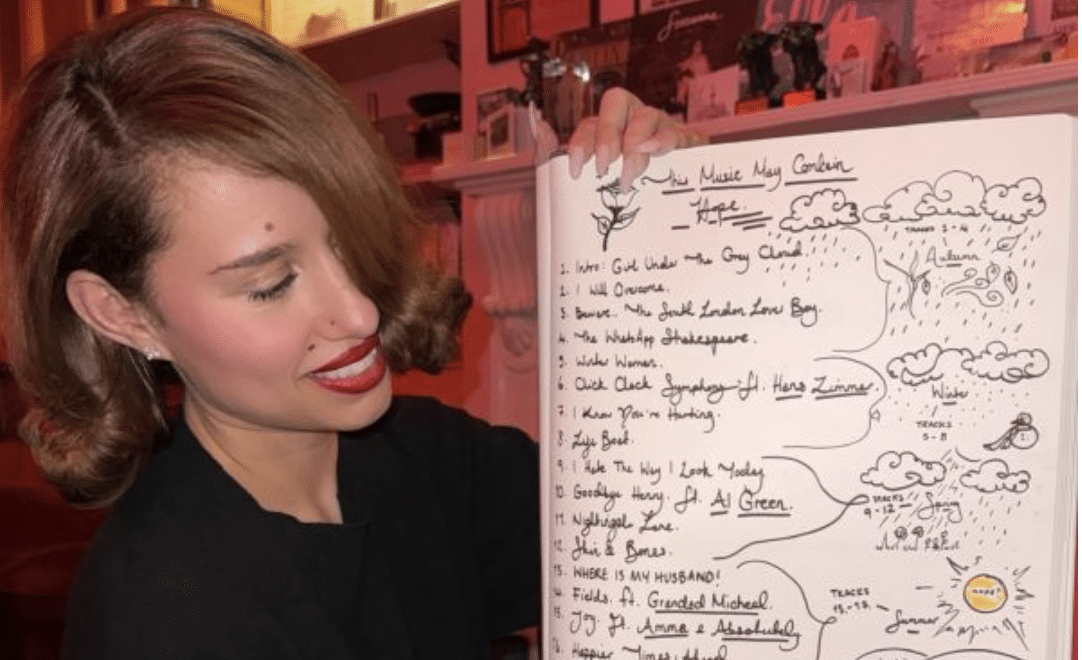 This Music May Contain
Hope.
1. Intro: Girl Under The Grey Cloud.
2. I Will Overcome.
3. Beware.. The South London Lover Boy.
4. The WhatsApp Shakespeare.
5. Winter Woman.
6. Click Clack Symphony ft. Hans Zimmer.
7. I Know You're Hurting.
8. Life Boat.
9. I Hate The Way I Look Today
10. Goodbye Henry. ft. Al Green.
11. Nightingale Lane.
12. Skin & Bones.
13. WHERE IS MY HUSBAND!
14. Fields. ft. Grandad Micheal.
15. Joy. ft. Amma & Absolutely
16. Happier Times Ahead
TRACKS 1-4
Autumn
Winter
TRACKS
5-8
TRACKS
9-12
Spring
TRACKS
13-
Summer
HOPE!
Suzanne